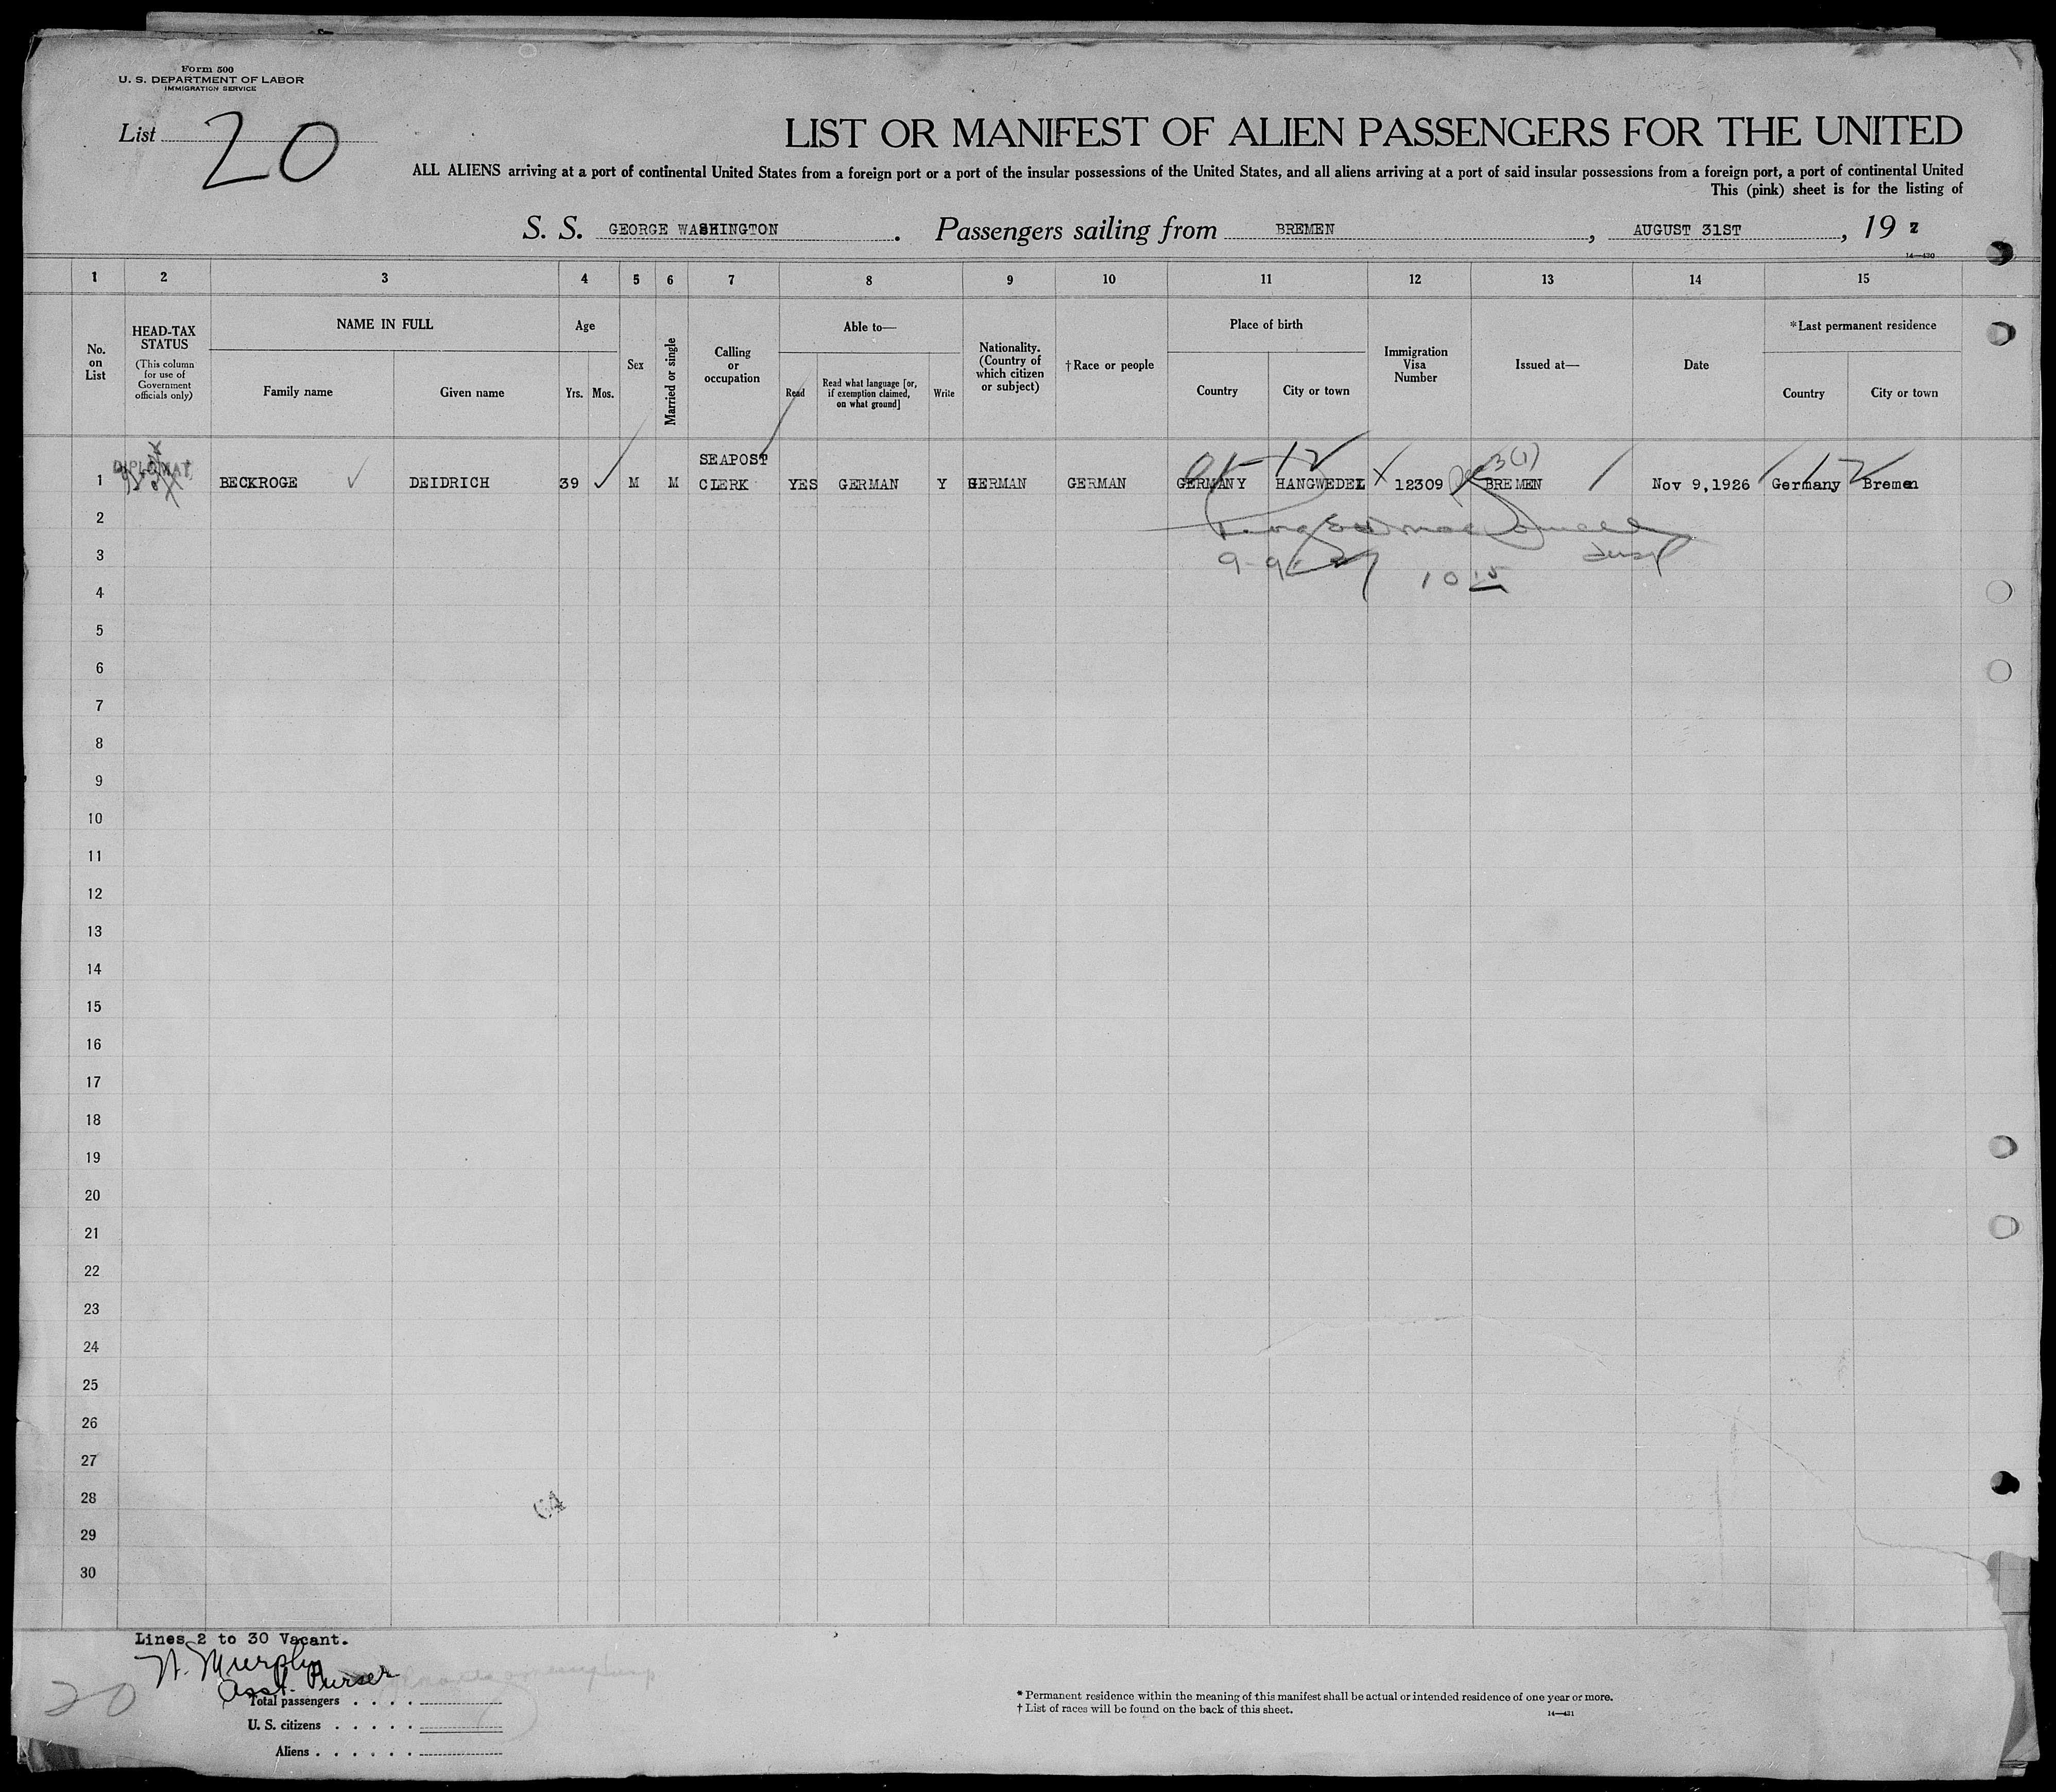 Form 500
U. S. DEPARTMENT OF LABOR
IMMIGRATION SERVICE
List 20
LIST OR MANIFEST OF ALIEN PASSENGERS FOR THE UNITED
ALL ALIENS arriving at a port of continental United States from a foreign port or a port of the insular possessions of the United States, and all aliens arriving at a port of said insular possessions from a foreign port, a port of continental United
This (pink) sheet is for the listing of
S. S. GEORGE WASHINGTON. Passengers sailing from BREMEN, AUGUST 31ST, 19
14—430
1 2 3 4 5 6 7 8 9 10 11 12 13 14 15
No. on List
HEAD-TAX STATUS
(This column for use of Government officials only)
NAME IN FULL
Family name
Given name
Age
Yrs. Mos.
Sex
Married or single
Calling or occupation
Able to—
Read
Read what language [or, if exemption claimed, on what ground]
Write
Nationality. (Country of which citizen or subject)
†Race or people
Place of birth
Country
City or town
Immigration Visa Number
Issued at—
Date
*Last permanent residence
Country
City or town
DIPLOMAT
12 3(1) 12
SEAPOST
1 BECKROGE DEIDRICH 39 M M CLERK YES GERMAN Y GERMAN GERMAN GERMANY HANGWEDEL 12309 BREMEN Nov 9,1926 Germany Bremen
2
3
9-9-27
4
10 15
5
6
7
8
9
10
11
12
13
14
15
16
17
18
19
20
21
22
23
24
25
26
27
28
29
30
Lines 2 to 30 Vacant.
N. Murphy
Asst. Purser
20
Total passengers . . . .
U. S. citizens . . . . .
Aliens . . . . . .
* Permanent residence within the meaning of this manifest shall be actual or intended residence of one year or more.
† List of races will be found on the back of this sheet.
14—431